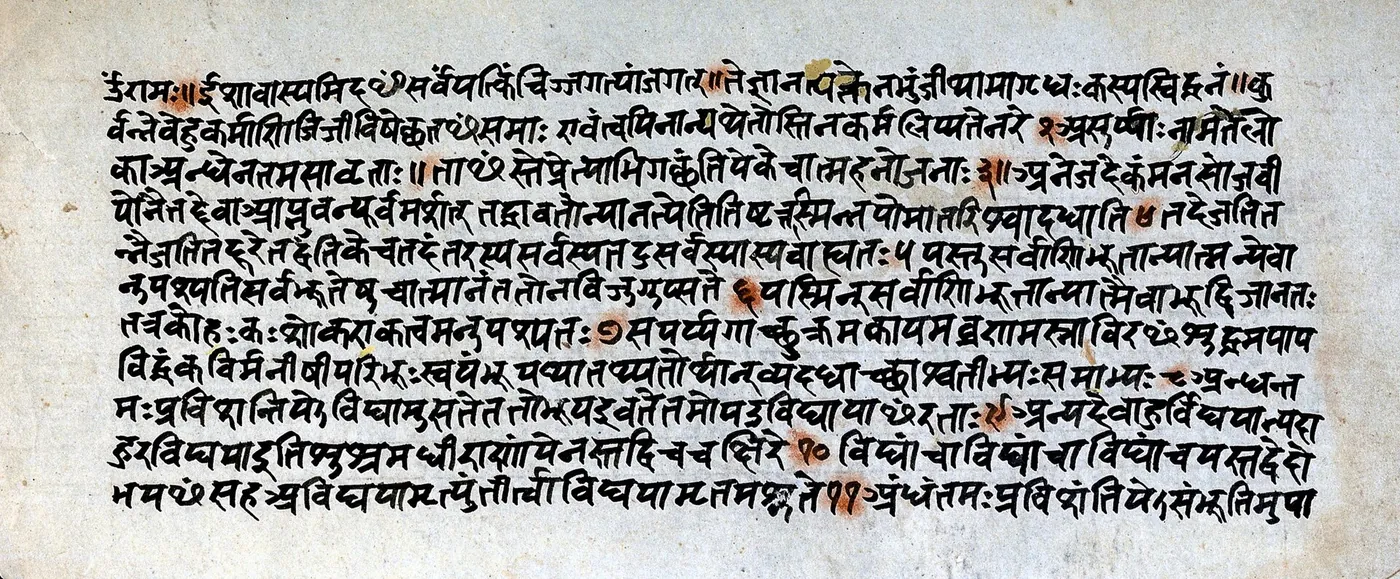 उँरामः॥ईशावास्यमिदꣳसर्वंयत्किंचिज्जगत्यांजगत्॥तेनात्यक्तेनभुंजीथामागृधःकस्यस्विद्धनं॥कु
र्वन्नेवेहकर्माणिजिजीविषेच्छतꣳसमाः एवंत्वयिनान्यथेतोस्तिनकर्मलिप्यतेनरे २ असुर्य्याःनामतेलो
काअन्धेनतमसावृताः॥ताꣳस्तेप्रेत्याभिगच्छंतियेकेचात्महनोजनाः३॥अनेजदेकंमनसोजवी
योनैतद्देवाआप्नुवन्पूर्वमर्शत् तद्धावतोन्यानत्येतितिष्टत्तस्मिन्नपोमातरिश्वादधाति ४ तदेजतित
न्नैजतितद्दूरेतद्वंतिकेचतदंतरस्यसर्वस्यतदुसर्वस्यास्यवाह्यतः५ यस्तुसर्वाणिभूतान्यात्मन्येवा
नुपश्यतिसर्वभूतेषुचात्मानंततोनविजुगुप्सते ६ यस्मिन्सर्वाणिभूतान्यात्मैवाभूद्विजानतः
तत्रकोहःकःशोकएकत्वमनुपश्यतः ७ सपर्य्यगाच्छुक्रमकायमव्रणमस्नाविरꣳशुद्धमपाप
विद्धंकविर्मनीषीपरिभूःस्वयंभूर्यथातथ्यतोर्थान्व्यदधाच्छाश्वतीभ्यःसमाभ्यः ८ अन्धन्त
मःप्रविशन्तियेऽविद्यामुसतेततोभूयइवतेतमोयउविद्यायाꣳरताः९ अन्यदेवाहुर्विद्ययान्यदा
हुरविद्ययाइतिशुश्रमधीराणांयेनस्तद्विचचक्षिरे १० विद्यांचाविद्यांचाविद्यांचयस्तद्वेदो
भयꣳसहअविद्ययामृत्युंतीर्त्वाविद्ययामृतमश्नुते ११ अंधंतमःप्रविशंतियेऽसंभूतिमुपा